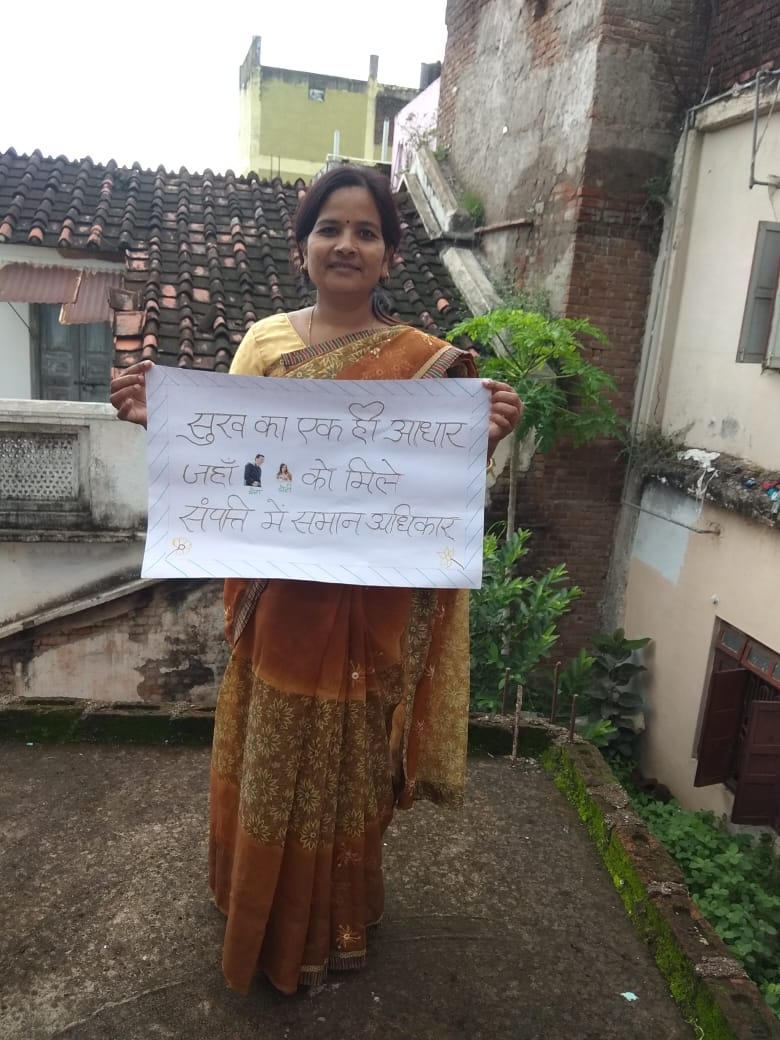 सुख का एक ही आधार
जहाँ बेटा बेटी को मिले
संपत्ति में समान अधिकार